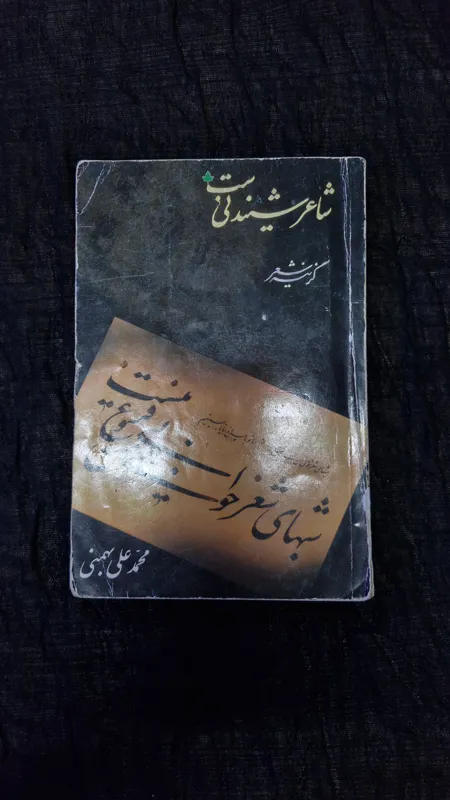 شاعر شنیدنی ست
گزینه شعر
شبهای شعر خوانی
من بی فروغ نیست
محمد علی بهمنی